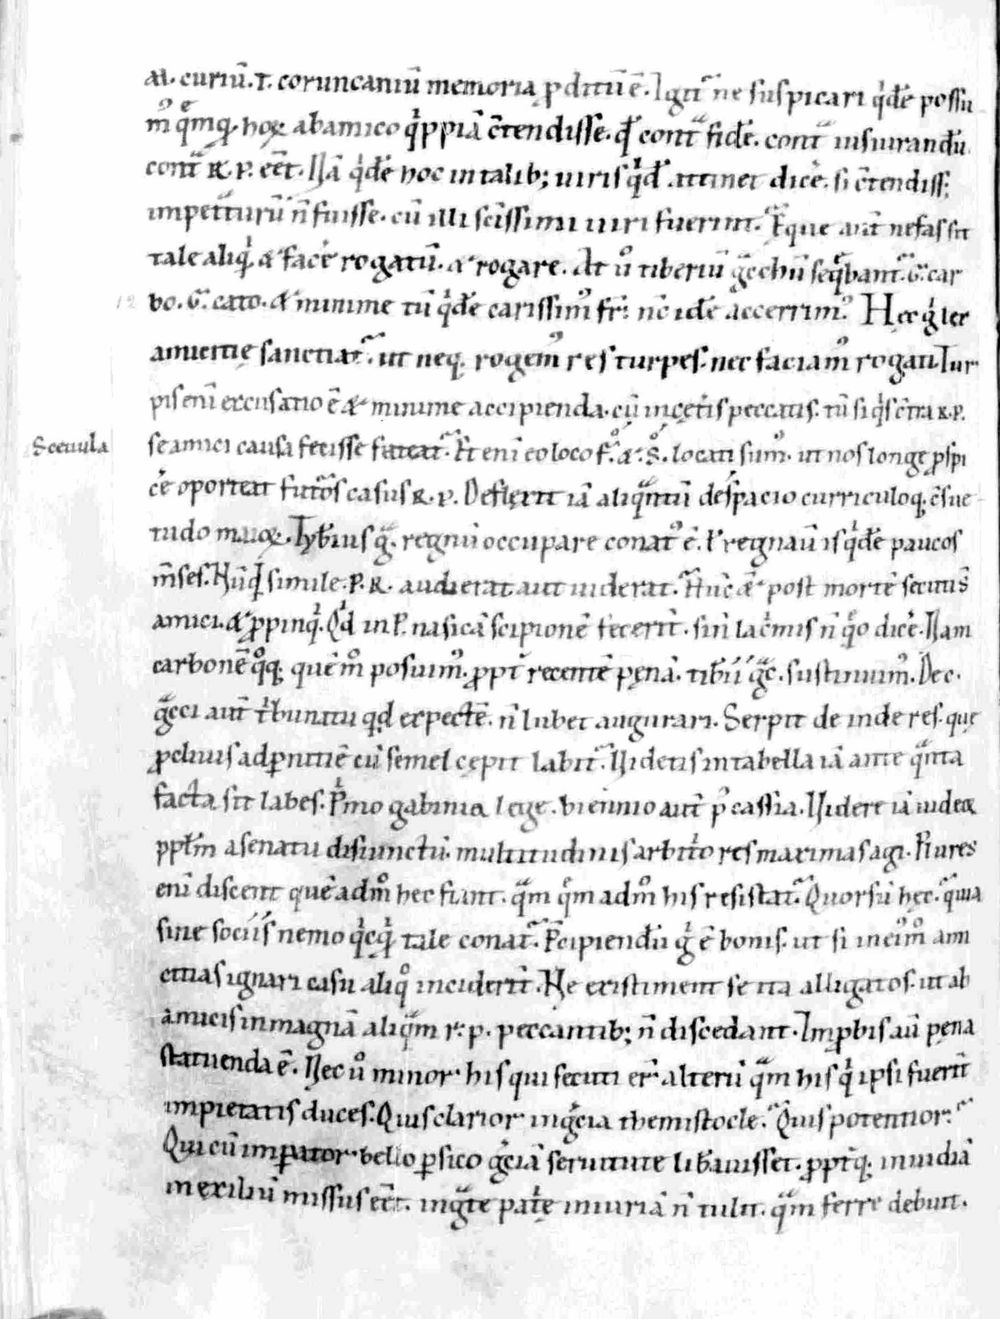 M. curiū. T. coruncaniū memoria ꝓditū ē. Igit᷑ ne suspicari qͥdē possu
mꝰ quēq̄. hoꝝ ab amico qͥppiā c̄tendisse. qđ contͣ fidē. contͣ iusiurandū
contͣ R. P. eēt. Nā qͥdē hoc in talib; uiris qͥd attinet dicē. si c̄tendiss;
impetͣturū ñ fuisse. cū illi sc̄issimi uiri fuerint. Eque aūt nefas sit
tale aliqͥd & facē rogatū. & rogare. At ū tiberiū gͣcchū seqͣbant᷑. G. car
bo. G. cato. & minime tū qͥdē carissimꝰ fr̄. nc̄ idē accerrimꝰ. Hec gͥ lex
amicitię sanciat᷑. ut neq. rogemꝰ res turpes. nec faciamꝰ rogati. Tur
pis eni excusatio ē & minime accipienda. cū in cęteris peccatis. tū si qͥs c̄tra R. P.
Sceuula se amici causa fecisse fateat᷑. Et eni eo loco f. & s. locati sumꝰ. ut nos longe ꝓspi
cē oporteat futuros casus R. P. Deflexit iā aliqͣntū de spacio curriculoq. c̄sue
tudo maioꝝ. Tyb̄ius gͣ. regnū occupare conatꝰ ē. ł regnauit is qͥdē paucos
m̄ses. Nūqͥd simile. P. R. audierat aut uiderat. Hūc & post mortē secuti s̄
amici. & ꝓpinqͥ. Qd in P. nasicā scipionē fecerit. sine lacͥmis ñ qͦ dicē. Nam
carbonē qͦq. quē mͦ posuimꝰ. ꝓpt̄ recentē pęnā. tib̄ii gͣc. sustinuimꝰ. De c.
gͣcci aūt tͥbunatu qd expectē. ñ lubet augurari. Serpit de inde res. que
ꝓcliuis ad ꝑnitiē cū semel cępit labit᷑. Uidetis in tabella iā ante qͣnta
facta sit labes. Pͥmo gabinia lege. biennio aūt p̄ cassia. Uidere iā uideor
ppłm a senatu disiunctū. multitudinis arbitͥo res maximas agi. Plures
eni discent quē admͦ hec fiant. qͣm qͦm admͦ his resistat᷑. Quorsū hęc. quia
sine sociis nemo qͥcqͣ tale conat᷑. P̄cipiendū gͥ ē bonis. ut si in eiꝰmͦ ami
citias ignari casu aliqͦ inciderit. Ne existiment se ita alligatos. ut ab
amicis in magnā aliqͣm r. p. peccantib; ñ discedant. Imꝓbis aū pęna
statuenda ē. Nec ū minor his qui secuti er̄ alterū qͣm his qͥ ipsi fuerit
impietatis duces. Quis clarior in gͣcia themistocle. Quis potentior.
Qui cū imꝑator bello ꝑsico gͣciā seruitute lib̄auisset. ꝓpt̄q. inuidiā
in exiliū missus eēt. ingͣtę patͥę iniuriā ñ tulit. qͣm ferre debuit.